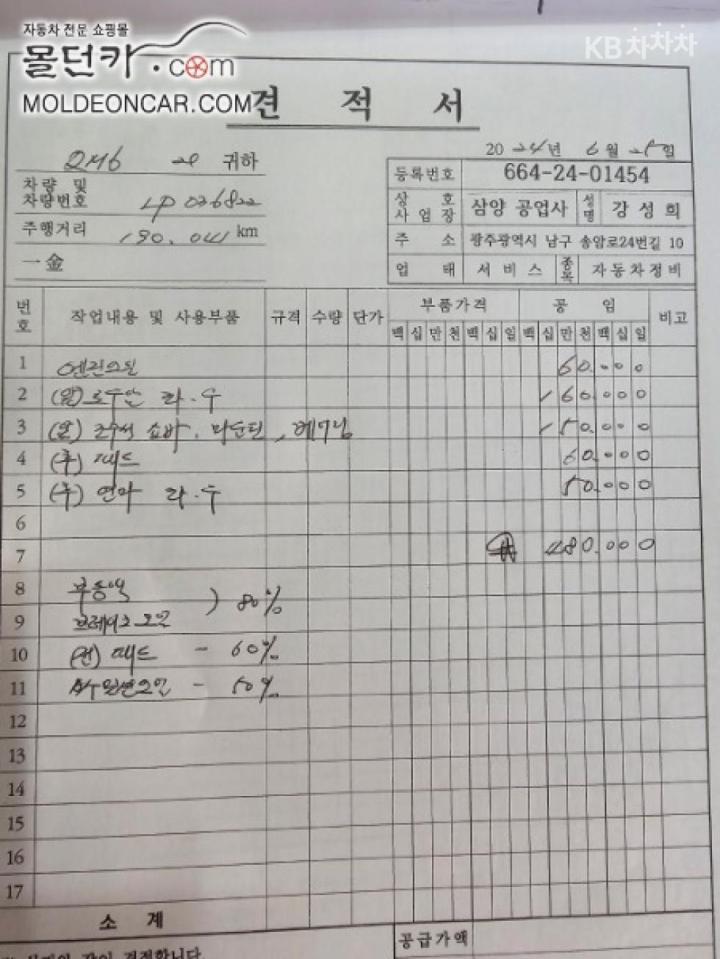 자동차 전문 쇼핑몰
몰던카.com
MOLDEONCAR.COM
KB차차차
견 적 서
QM6 귀하
2024년 6월 일
차량 및
차량번호
주행거리 190.041 km
一金
등록번호 664-24-01454
상호
사업장 삼양 공업사 성명 강성희
주소 광주광역시 남구 송암로24번길 10
업태 서비스 종목 자동차정비
번호 작업내용 및 사용부품 규격 수량 단가 부품가격 공임 비고
백 십 만 천 백 십 일 백 십 만 천 백 십 일
1 엔진오일 60.000
2 (앞) 로우암 좌.우 160.000
3 (앞) 조수석 쇼바. 마운틴, 베어링 150.000
4 (후) 패드 60.000
5 (후) 연마 좌.우 50.000
6
7 ₩ 480.000
8 부동액
) 80%
9 브레이크오일
10 (전) 패드 - 60%
11 미션오일 - 50%
12
13
14
15
16
17
소 계
공급가액